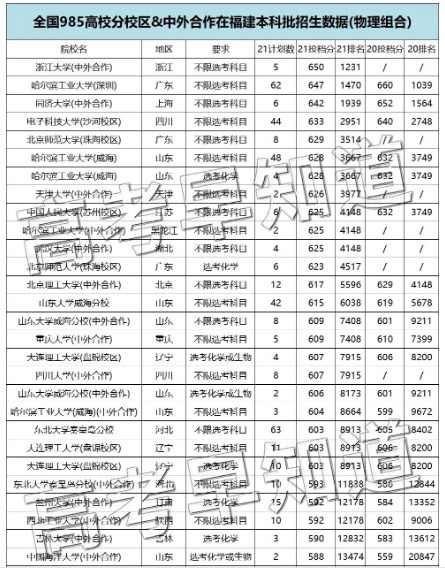 全国985高校分校区&中外合作在福建本科批招生数据(物理组合)
院校名 地区 要求 21计划数 21投档分 21排名 20投档分 20排名
浙江大学(中外合作) 浙江 不限选考科目 5 650 1231 / /
哈尔滨工业大学(深圳) 广东 不限选考科目 62 647 1470 660 1039
同济大学(中外合作) 上海 不限选考科目 6 642 1939 652 1564
电子科技大学(沙河校区) 四川 不限选考科目 44 633 2951 640 2748
北京师范大学(珠海校区) 广东 不限选考科目 8 629 3514 / /
哈尔滨工业大学(威海) 山东 不限选考科目 48 628 3667 632 3749
哈尔滨工业大学(威海) 山东 选考化学 4 628 3667 632 3749
天津大学(中外合作) 天津 不限选考科目 2 626 3977 / /
中国人民大学(苏州校区) 江苏 不限选考科目 6 625 4148 632 3749
哈尔滨工业大学(中外合作) 黑龙江 不限选考科目 2 625 4148
武汉大学(中外合作) 湖北 不限选考科目 4 625 4148 / /
北京师范大学(珠海校区) 广东 选考化学 6 623 4517 / /
北京理工大学(中外合作) 北京 不限选考科目 12 617 5596 629 4148
山东大学威海分校 山东 不限选考科目 42 615 6038 619 5678
山东大学威海分校(中外合作) 山东 不限选考科目 8 609 7408 601 9211
重庆大学(中外合作) 重庆 不限选考科目 5 609 7408 610 7399
大连理工大学(盘锦校区) 辽宁 选考化学或生物 4 607 7915 606 8200
四川大学(中外合作) 四川 不限选考科目 8 607 7915 / /
山东大学威海分校(中外合作) 山东 选考化学或生物 2 606 8173 601 9211
哈尔滨工业大学(威海)(中外合作) 山东 不限选考科目 3 604 8664 599 9672
东北大学秦皇岛分校 河北 不限选考科目 63 603 8913 605 8402
大连理工大学(盘锦校区) 辽宁 不限选考科目 11 603 8913 606 8200
大连理工大学(盘锦校区) 辽宁 选考化学 10 603 8913 606 8200
东北大学秦皇岛分校(中外合作) 河北 不限选考科目 10 593 11838 586 12844
兰州大学(中外合作) 甘肃 选考化学 15 592 12178 584 13352
西北工业大学(中外合作) 陕西 不限选考科目 10 592 12178 602 9006
吉林大学(中外合作) 吉林 选考化学 3 590 12832 583 13612
中国海洋大学(中外合作) 山东 选考化学或生物 2 588 13474 559 20847
高考早知道
高考早知道